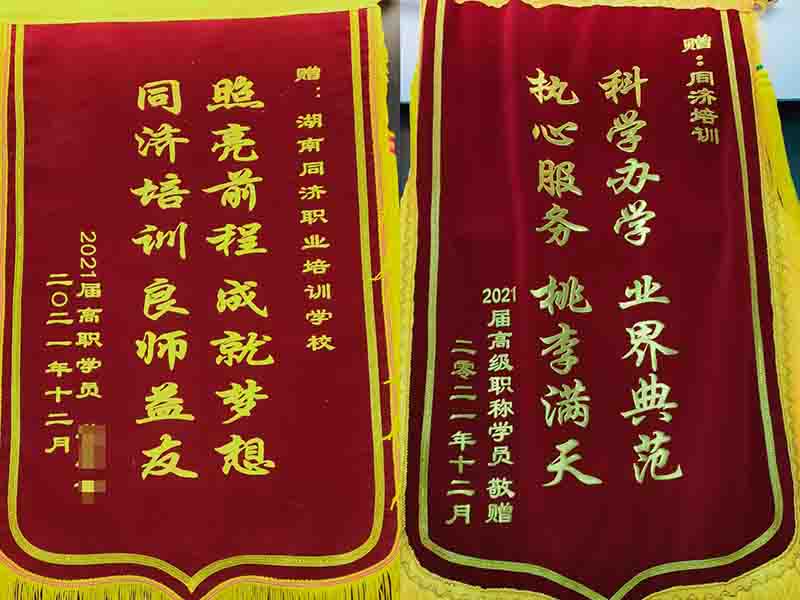 赠：湖南同济职业培训学校
照亮前程 成就梦想
同济培训 良师益友
2021届高职学员
二〇二一年十二月
赠：同济培训
科学办学 业界典范
执心服务 桃李满天
2021届高级职称学员 敬赠
二零二一年十二月